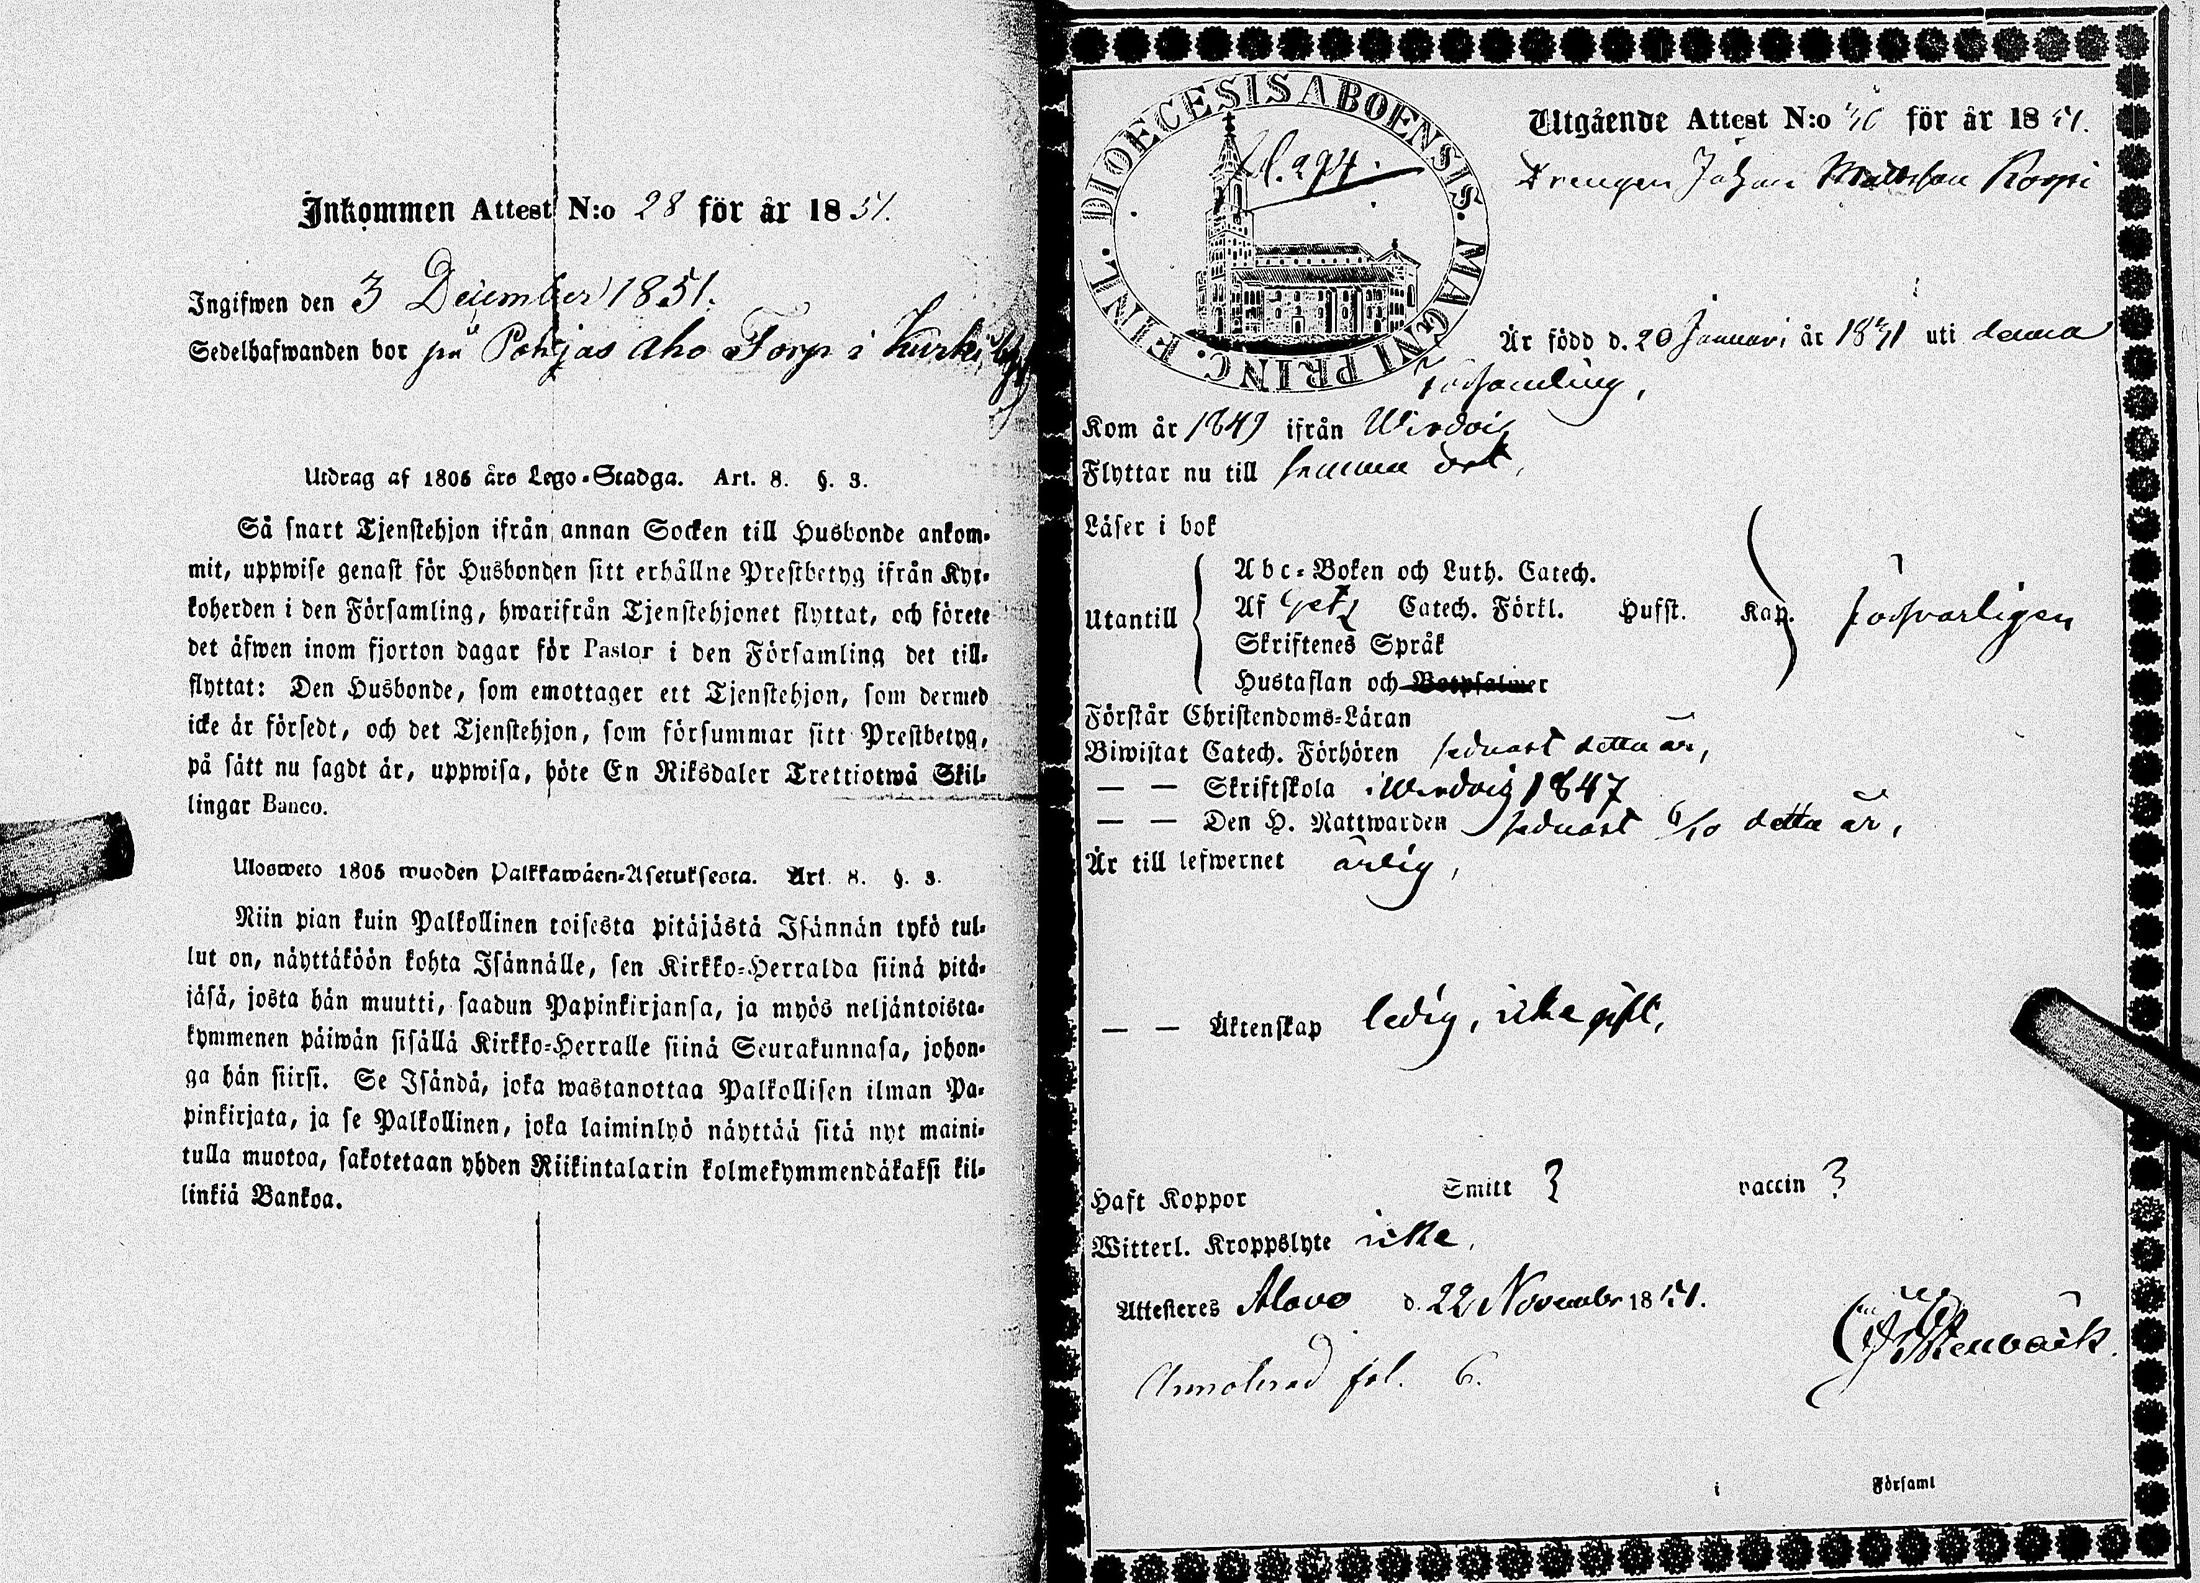 Inkommen Attest N:o 28 för år 1851.
Ingifwen den 3 December 1851.
Sedelhafwanden bor på Pohjas aho Torp i Kurki
Utdrag af 1805 års Lego-Stadga. Art. 8. §. 3.
Så snart Tjenstehjon ifrån annan Socken till Husbonde ankom-
mit, uppwise genast för Husbonden sitt erhållne Prestbetyg ifrån Kyr-
koherden i den Församling, hwarifrån Tjenstehjonet flyttat, och förete
det äfwen inom fjorton dagar för Pastor i den Församling det till-
flyttat: Den Husbonde, som emottager ett Tjenstehjon, som dermed
icke är försedt, och det Tjenstehjon, som försummar sitt Prestbetyg,
på sätt nu sagdt är, uppwisa, böte En Riksdaler Trettiotwå Skil-
lingar Banco.
Ulosweto 1805 wuoden Palkkawäen-Asetuksesta. Art. 8. §. 3.
Niin pian kuin Palkollinen toisesta pitäjästä Isännän tykö tul-
lut on, näyttäköön kohta Isännälle, sen Kirkko-Herralda siinä pitä-
jäsä, josta hän muutti, saadun Papinkirjansa, ja myös neljäntoista-
kymmenen päiwän sisällä Kirkko-Herralle siinä Seurakunnasa, johon-
ga hän siirsi. Se Isändä, joka wastanottaa Palkollisen ilman Pa-
pinkirjata, ja se Palkollinen, joka laiminlyö näyttää sitä nyt maini-
tulla muotoa, sakotetaan yhden Riikintalarin kolmekymmendäkaksi kil-
linkiä Bankoa.
DIOECESIS ABOENSIS. MAGNI PRINC. FINL.
Utgående Attest N:o för år 1851.
Drengen Johan Mattsson Korpi
Är född d. 20 Januari år 1831 uti denna
Församling,
Kom år 1849 ifrån Wirdois
Flyttar nu till samma ort,
Läser i bok
Utantill
Abc-Boken och Luth. Catech.
Af Catech. Förkl. Husst. Kap.
Skriftenes Språk
Hustaflan och Botpsalmer
försvarligen
Förstår Christendoms-Läran
Biwistat Catech. Förhören sednast detta år,
— — Skriftskola i Wirdois 1847
— — Den H. Nattwarden sednast 6/10 detta år,
Är till lefwernet ärlig,
— — Äktenskap ledig, icke gift,
Haft Koppor Smitt ? vaccin ?
Witterl. Kroppslyte icke,
Attesteres Alavo d. 22 November 1851.
Stenbäck.
Annoterad fol. 6.
i Församl